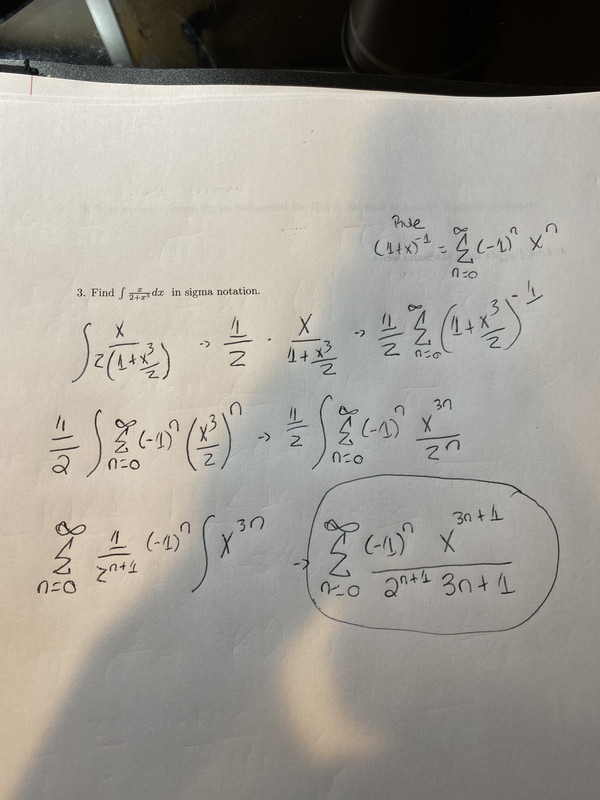 Rule
(1+x)^-1 = ∞ Σ n=0 (-1)^n x^n
3. Find ∫ x/(2+x^3) dx in sigma notation.
∫ x/2(1+x^3/2) → 1/2 · x/(1+x^3/2) → 1/2 ∞ Σ n=0 (1+x^3/2)^-1
1/2 ∫ ∞ Σ n=0 (-1)^n (x^3/2)^n → 1/2 ∫ ∞ Σ n=0 (-1)^n x^3n/2^n
∞ Σ n=0 1/2^n+1 (-1)^n ∫ x^3n → ∞ Σ n=0 (-1)^n x^3n+1 / 2^n+1 3n+1